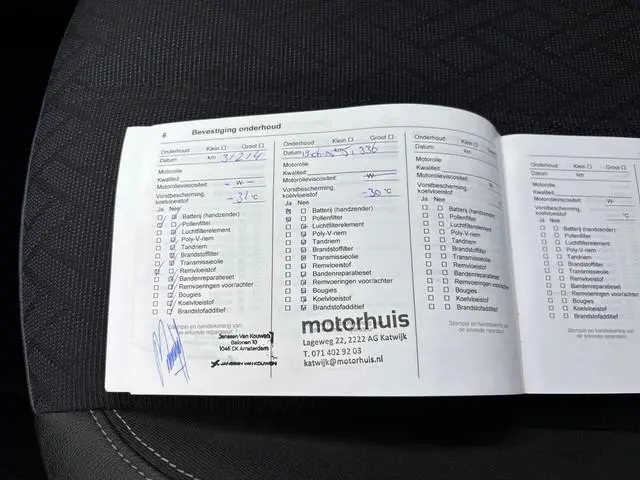 6 Bevestiging onderhoud
Onderhoud Klein ☐ Groot ☐
Datum km 31214
Motorolie
Kwaliteit
Motorolieviscositeit: - W -
Vorstbescherming, koelvloeistof -31 °C
Ja Nee
Batterij (handzender)
Pollenfilter
Luchtfilterelement
Poly-V-riem
Tandriem
Brandstoffilter
Transmissieolie
Remvloeistof
Bandenreparatieset
Remvoeringen voor/achter
Bougies
Koelvloeistof
Brandstofadditief
Stempel en handtekening van
de erkende reparateur
Janssen Van Kouwen
1046 CK Amsterdam
JANSSEN VAN KOUWEN
Onderhoud Klein ☐ Groot ☐
Datum km 51.336
Motorolie
Kwaliteit
Motorolieviscositeit: W
Vorstbescherming,
koelvloeistof -30 °C
Ja Nee
Batterij (handzender)
Pollenfilter
Luchtfilterelement
Poly-V-riem
Tandriem
Brandstoffilter
Transmissieolie
Remvloeistof
Bandenreparatieset
Remvoeringen voor/achter
Bougies
Koelvloeistof
Brandstofadditief
motorhuis
Lageweg 22, 2222 AG Katwijk
T. 071 402 92 03
katwijk@motorhuis.nl
Onderhoud Klein ☐ Groot ☐
Datum km
Motorolie
Kwaliteit
Motorolieviscositeit: W
Vorstbescherming,
koelvloeistof
Ja Nee
Batterij (handzender)
Pollenfilter
Luchtfilterelement
Poly-V-riem
Tandriem
Brandstoffilter
Transmissieolie
Remvloeistof
Bandenreparatieset
Remvoeringen voor/achter
Bougies
Koelvloeistof
Brandstofadditief
Stempel en handtekening van
de erkende reparateur
Onderhoud Klein ☐ Groot ☐
Datum km
Motorolie
Kwaliteit
Motorolieviscositeit:
Vorstbescherming,
koelvloeistof
Ja Nee
Batterij (handzender)
Pollenfilter
Luchtfilterelement
Poly-V-riem
Tandriem
Brandstoffilter
Transmissieolie
Remvloeistof
Bandenreparatieset
Remvoeringen voor/achter
Bougies
Koelvloeistof
Brandstofadditief
Stempel en handtekening van
de erkende reparateur